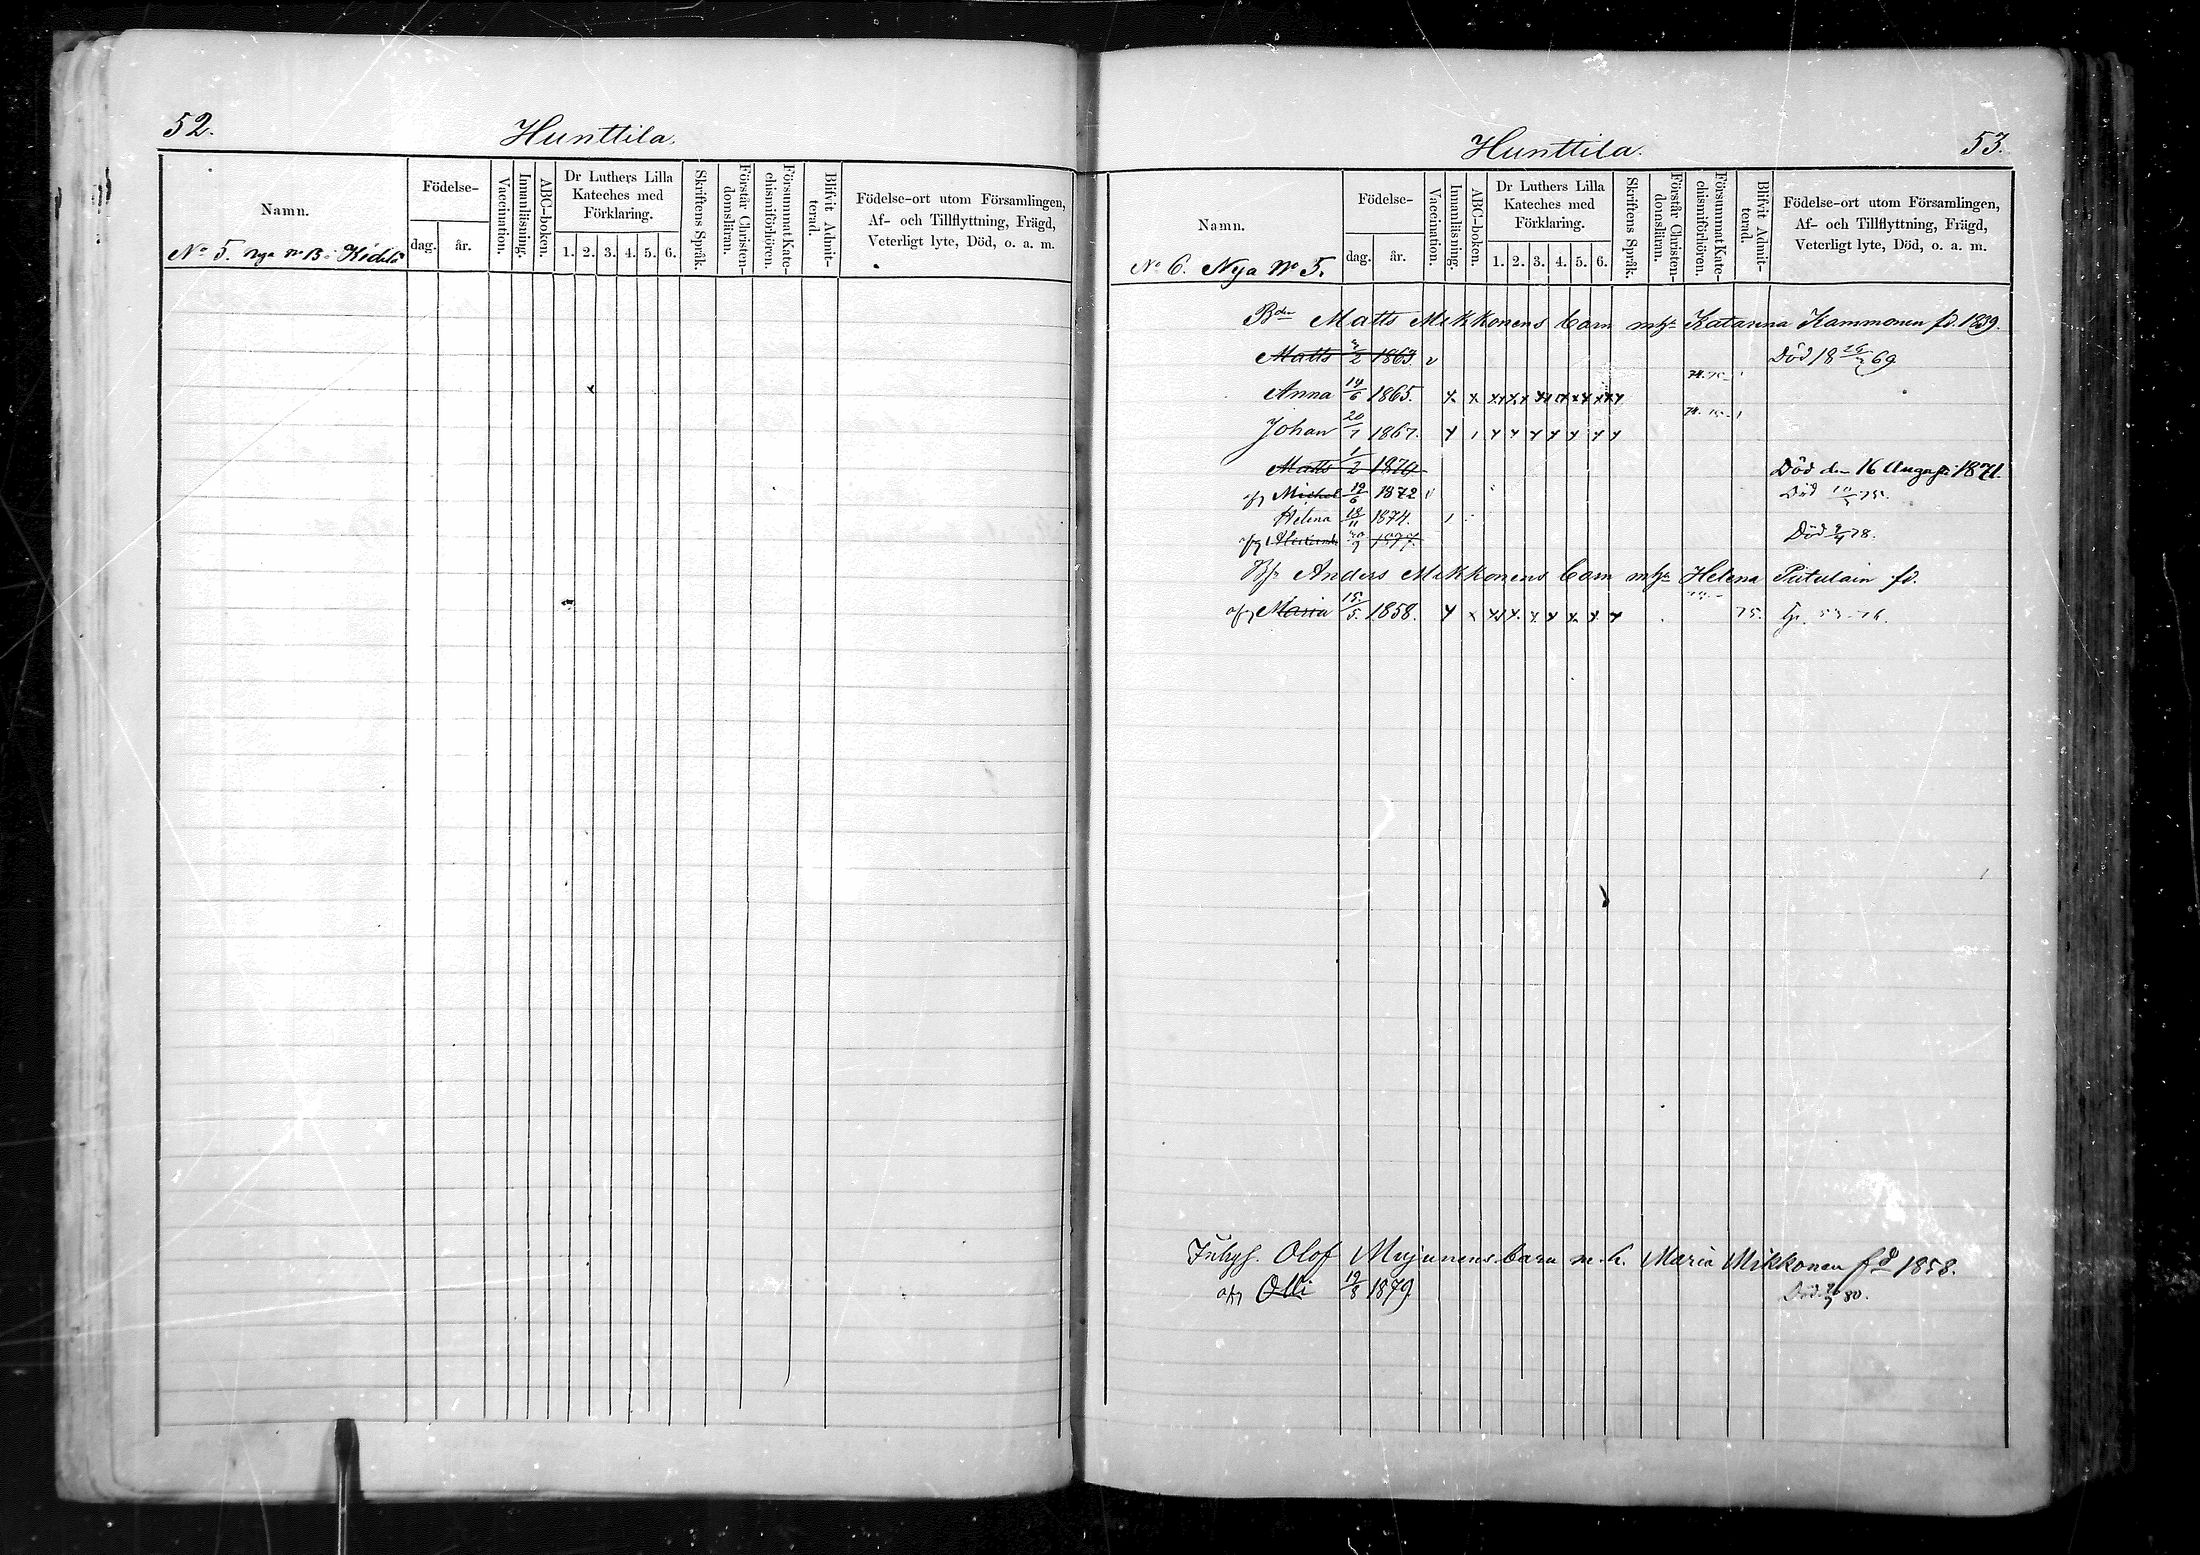 52.
Hunttila.
Namn.
Födelse-
dag. år.
Vaccination.
Innanläsning.
ABC-boken.
Dr Luthers Lilla
Kateches med
Förklaring.
1. 2. 3. 4. 5. 6.
Skriftens Språk.
Förstår Christen-
domsläran.
Försummat Kate-
chismiförhören.
Blifvit Admit-
terad.
Födelse-ort utom Församlingen,
Af- och Tillflyttning, Frägd,
Veterligt lyte, Död, o. a. m.
No 5. Nya No 13
Hunttila.
53.
Namn.
Födelse-
dag. år.
Vaccination.
Innanläsning.
ABC-boken.
Dr Luthers Lilla
Kateches med
Förklaring.
1. 2. 3. 4. 5. 6.
Skriftens Språk.
Förstår Christen-
domsläran.
Försummat Kate-
chismiförhören.
Blifvit Admit-
terad.
Födelse-ort utom Församlingen,
Af- och Tillflyttning, Frägd,
Veterligt lyte, Död, o. a. m.
No 6. Nya No 5.
Bdn Matts Mikkonens barn mhu Katarina Kammonen fd. 1839.
Matts 1863. v Död 18 69
Anna 14/6 1865. x x
Johan 20/1 1867.
Matts 1/2 1870 Död den 16 Augusti 1871.
Michel 19/6 1872 Död 75.
Helena 18/11 1874.
1877. Död 78.
Anders Mikkonens barn mhu Helena Putulain fd.
Maria 15/5 1858. 75. 53. 76.
Inhys. Olof Mujunens barn m. h. Maria Mikkonen fd 1858.
Olli 19/8 1879. Död 80.